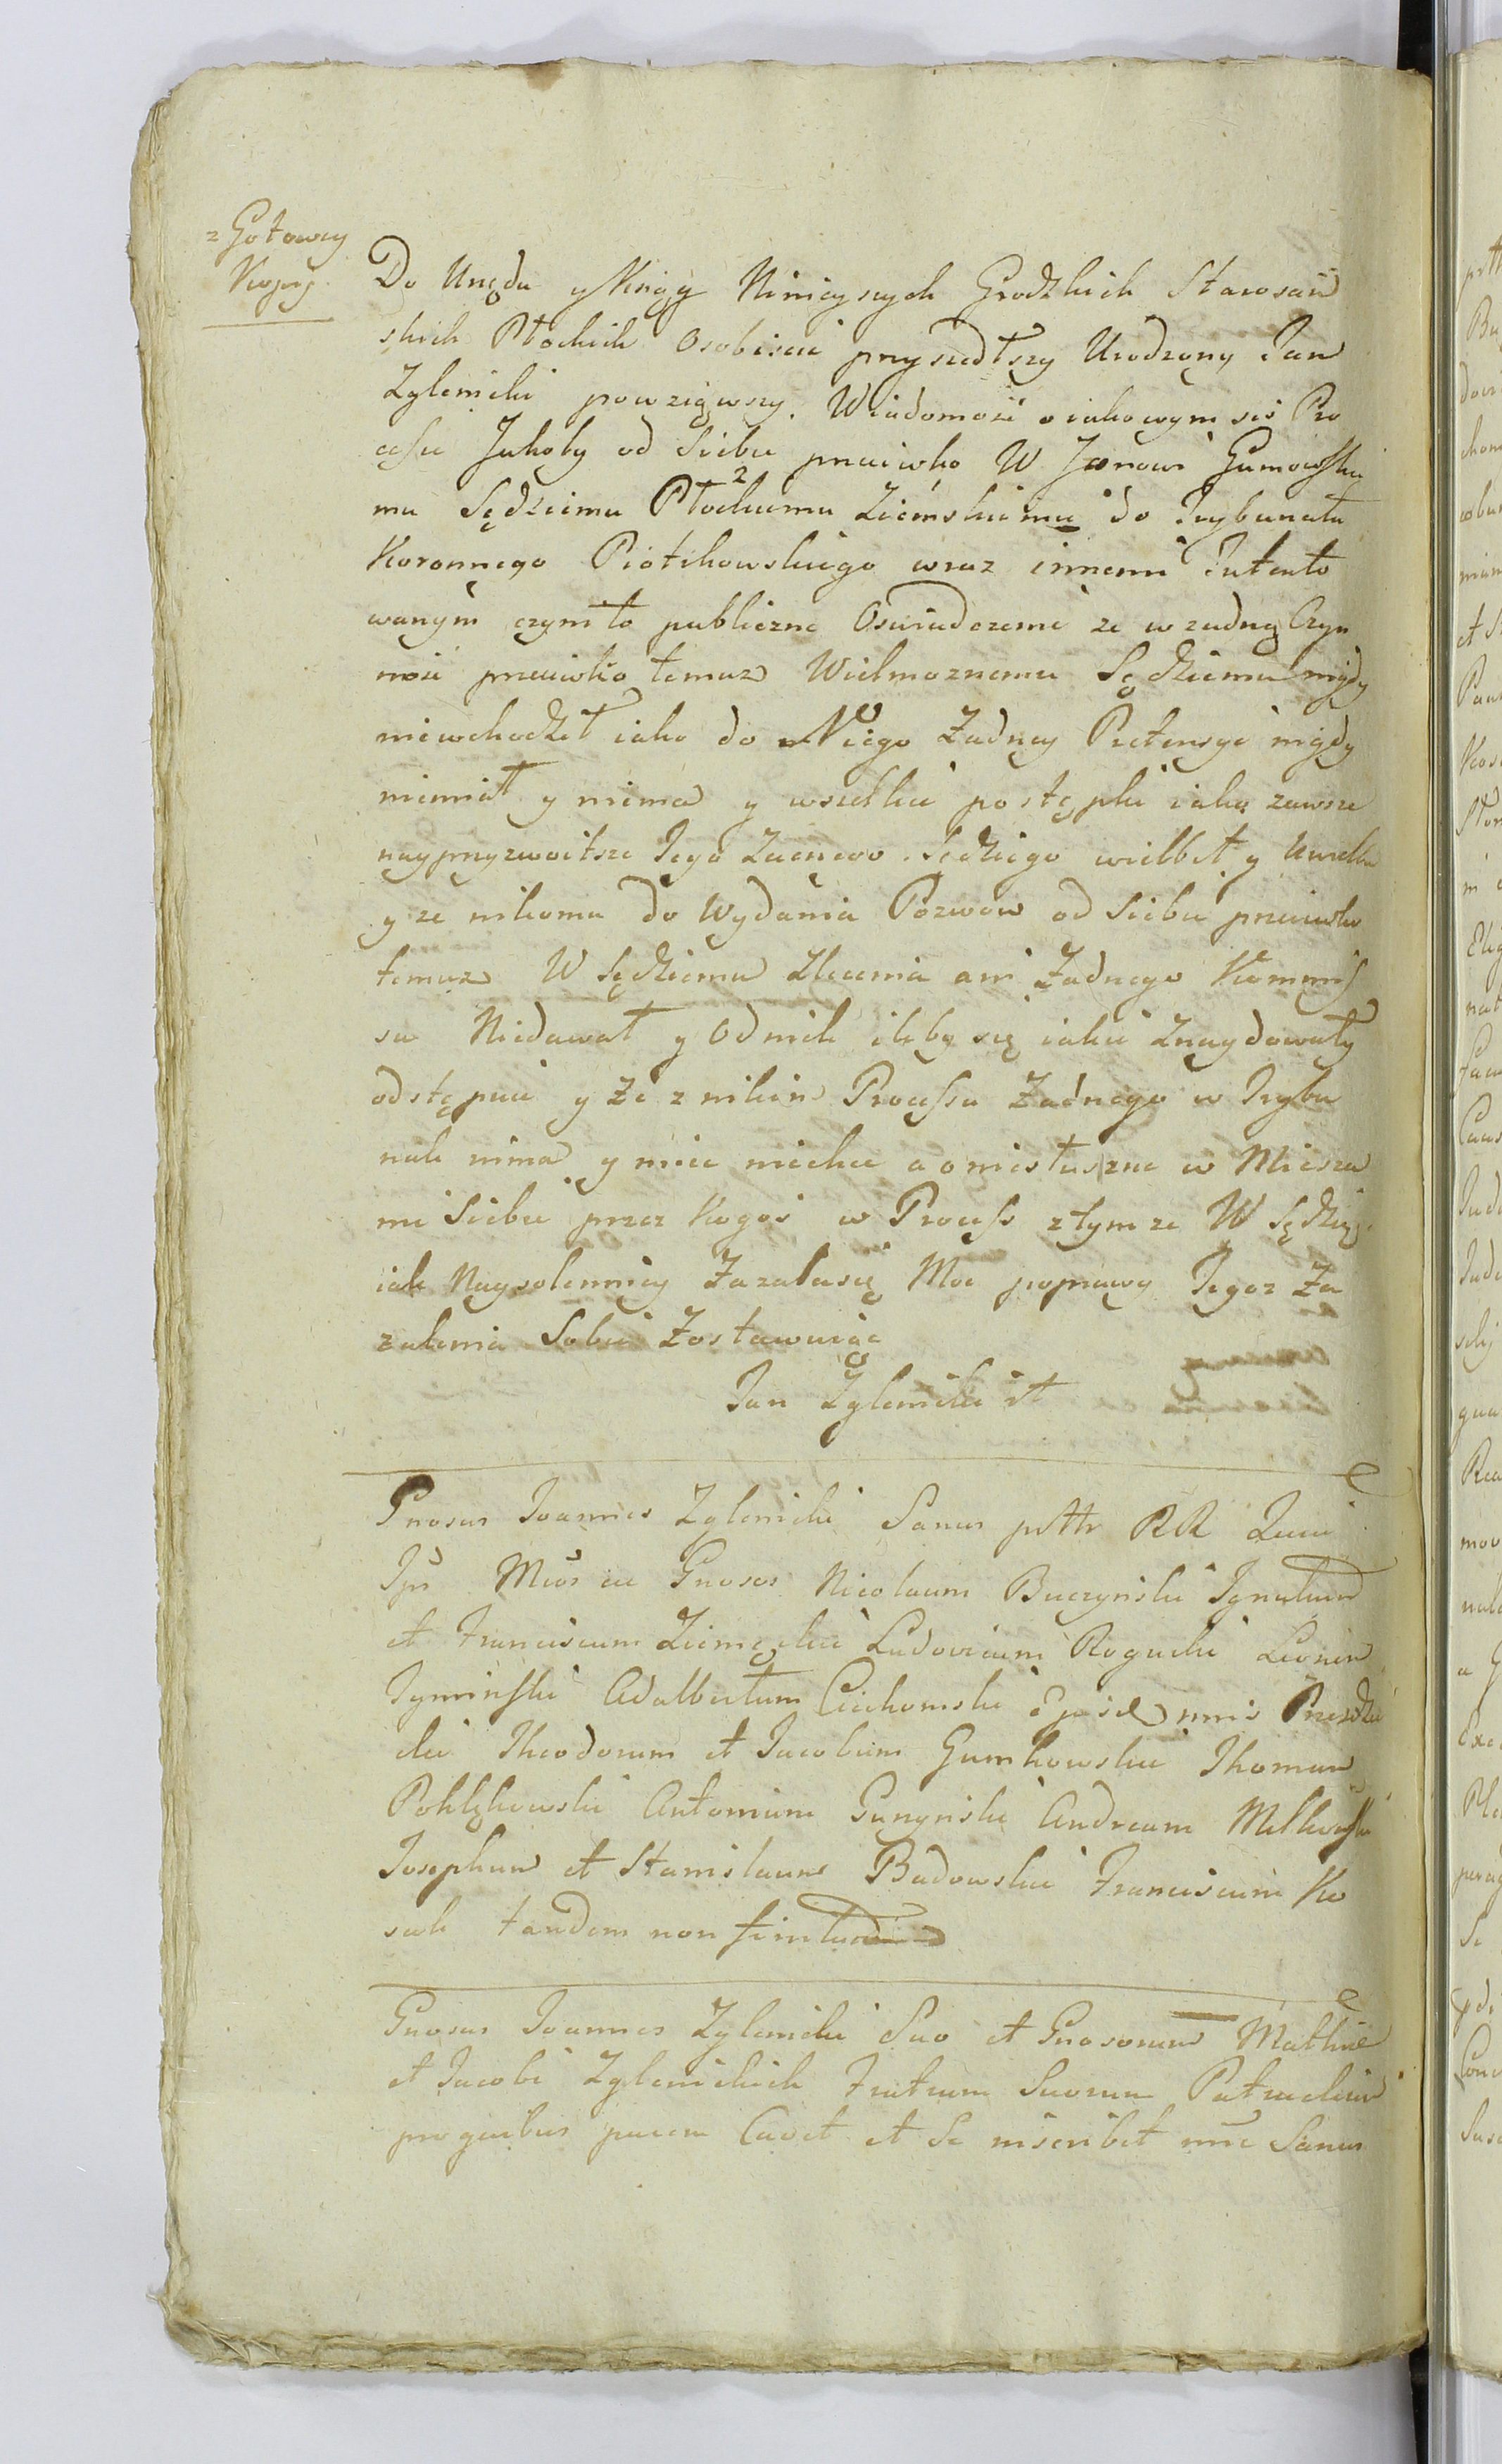 z Gotowey
Kopij
Do Urzędu y Xnąg Ninieyszych Grodzkich Starosciń
skich Płockich Osobiscie przyszedłszy Urodzony Jan
Zglenicki powziąwszy Wiadomość o iakowym sis Pro
cessu Jakoby od Siebie przeciwko W Janowi Gumowskie
mu Sędziemu Płockiemu Ziemskiemu do Trybunału
Koronnego Piotrkowskiego wraz innemi Intento
wanym czyni to publiczne Oswiadczenie ze w zadną Czyn
ność przeciwko temuz Wielmoznemu Sędziemu nigdy
niewchodził iako do Niego Zadney Pretensyi nigdy
niemiał y niema y wszelkie postępki iako zawsze
nayprzyzwoitsze Jego Zacnego Sędziego wielbił y Uwielbia
y ze nikomu do Wydania Pozwow od Siebie przeciwko
temuz W Sędziemu Zlecenia ani Zadnego Kommis
su Niedawał y Od nich ileby się iakie Znaydowały
odstępuie y Ze z nikim Processu Zadnego w Trybu
nale nima y miec niechce a o niesłuszne w Miesza
nie Siebie przez Kogoś w Process z tym ze W Sędzią
iak Naysolenniey Zazalasię Moc poprawy Tegoz Za
zalenia Sobie Zostawuiąc
Jan Zglenicki
Gnosus Joannes Zglenicki Sanus RR
Gnosos Nicolaum Buczynski Ignatium
et Franciscum Ziemęckie Ludovicum Rogucki
Adalbertum Ciechomski
ckie Theodorum et Jacobum Gumkowskie Thomam
Antonium Andream
Josephum et Stanislaum Badowskie Franciscum Ko
sak tandem non
Gnosus Joannes Zglenicki Suo et Gnosorum Mathiæ
et Jacobi Zglenickich Fratrum Suorum Patruelium
pro quibus pacem Cavet et Se inscribit nne Sanus